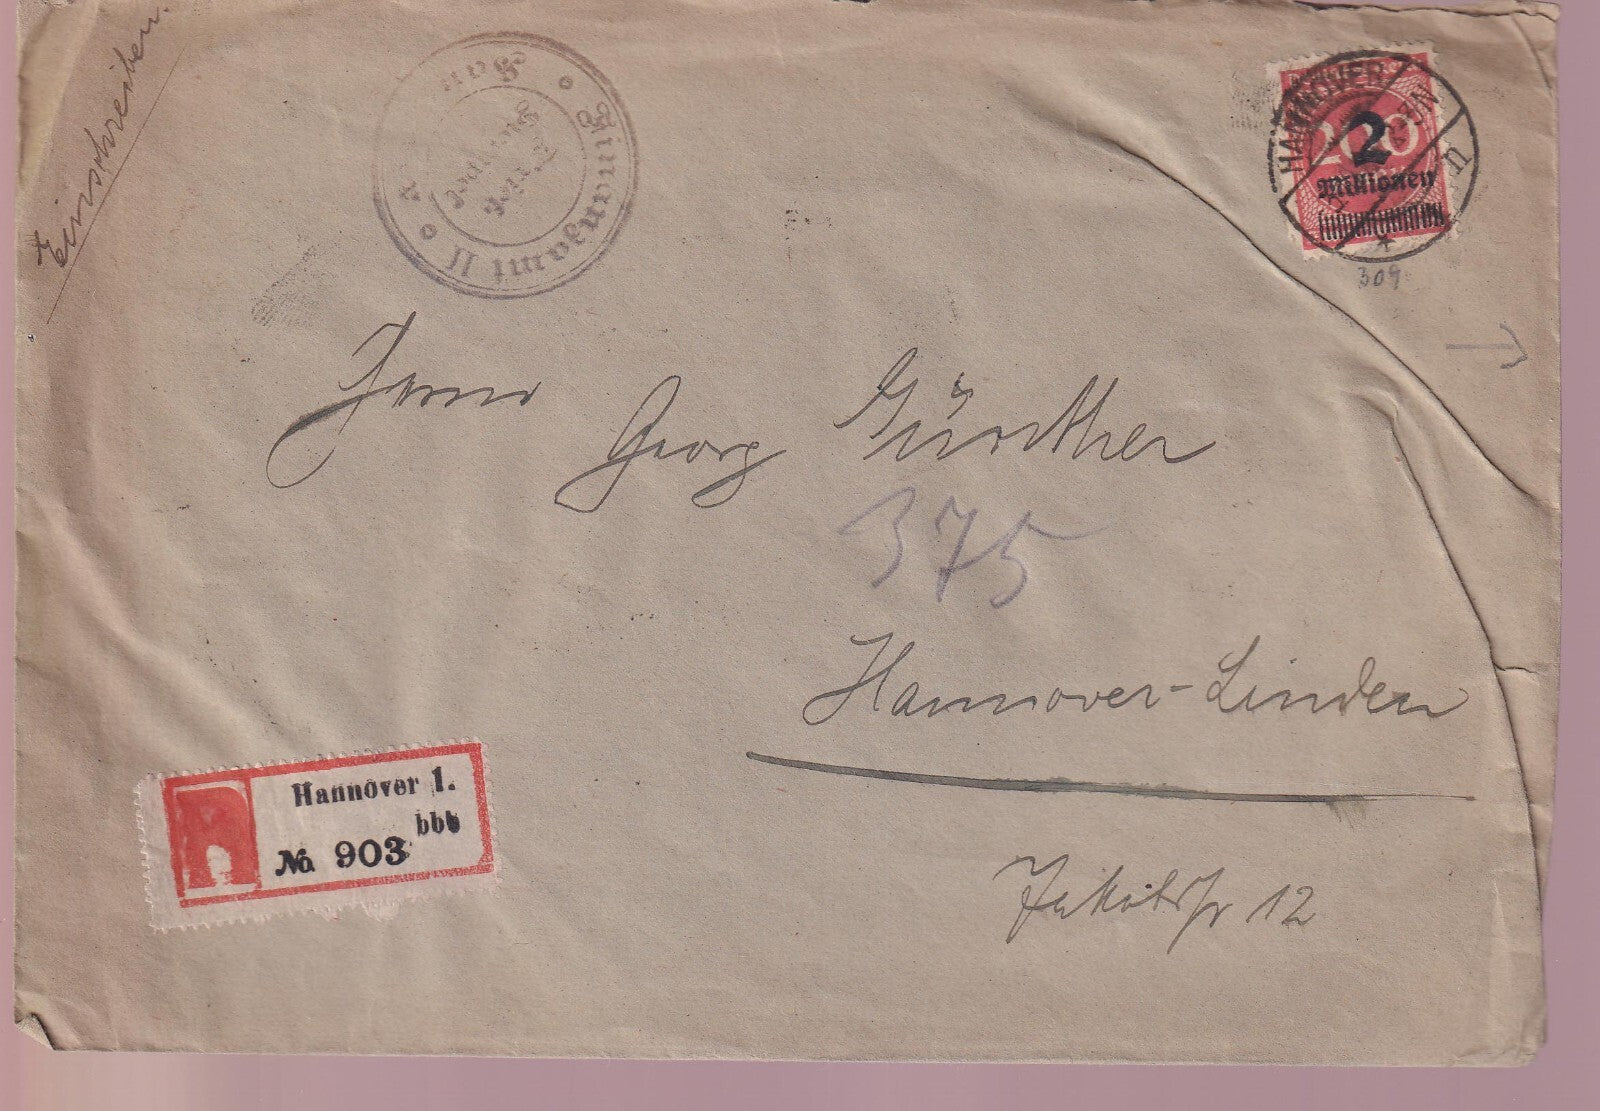 Einschreiben.
Wohnungsamt II
HANNOVER
200
2
Millionen
n
309
Herrn Georg Günther
375
Hannover-Linden
12
Hannover 1.
bbb
No. 903